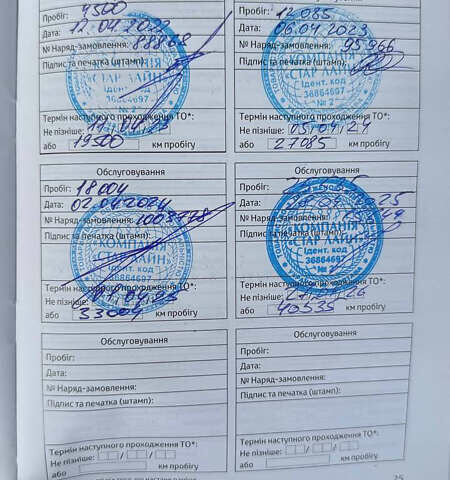 Пробіг: 4500
Дата: 12.04.2022
№ Наряд-замовлення: 88868
Підпис та печатка (штамп):
КОМПАНІЯ
«СТАР ЛАЙН»
Ідент. код
36864697
№ 2
Термін наступного проходження ТО*:
Не пізніше: 11.04.23
або 19500 км пробігу
Пробіг: 12085
Дата: 06.04.2023
№ Наряд-замовлення: 95966
Підпис та печатка (штамп):
КОМПАНІЯ
«СТАР ЛАЙН»
Ідент. код
36864697
№ 2
Термін наступного проходження ТО*:
Не пізніше: 05.04.24
або 27085 км пробігу
Обслуговування
Пробіг: 18004
Дата: 02.04.2024
№ Наряд-замовлення: 1003778
Підпис та печатка (штамп):
КОМПАНІЯ
«СТАР ЛАЙН»
Ідент. код
36864697
Термін наступного проходження ТО*:
Не пізніше: 01.04.25
або 33004 км пробігу
Обслуговування
Пробіг:
Дата:
№ Наряд-замовлення:
Підпис та печатка (штамп):
КОМПАНІЯ
«СТАР ЛАЙН»
Ідент. код
36864697
№ 2
Термін наступного проходження ТО*:
Не пізніше:
або 40535 км пробігу
Обслуговування
Пробіг:
Дата:
№ Наряд-замовлення:
Підпис та печатка (штамп):
Термін наступного проходження ТО*:
Не пізніше:
або км пробігу
Обслуговування
Пробіг:
Дата:
№ Наряд-замовлення:
Підпис та печатка (штамп):
Термін наступного проходження ТО*:
Не пізніше:
або км пробігу
25